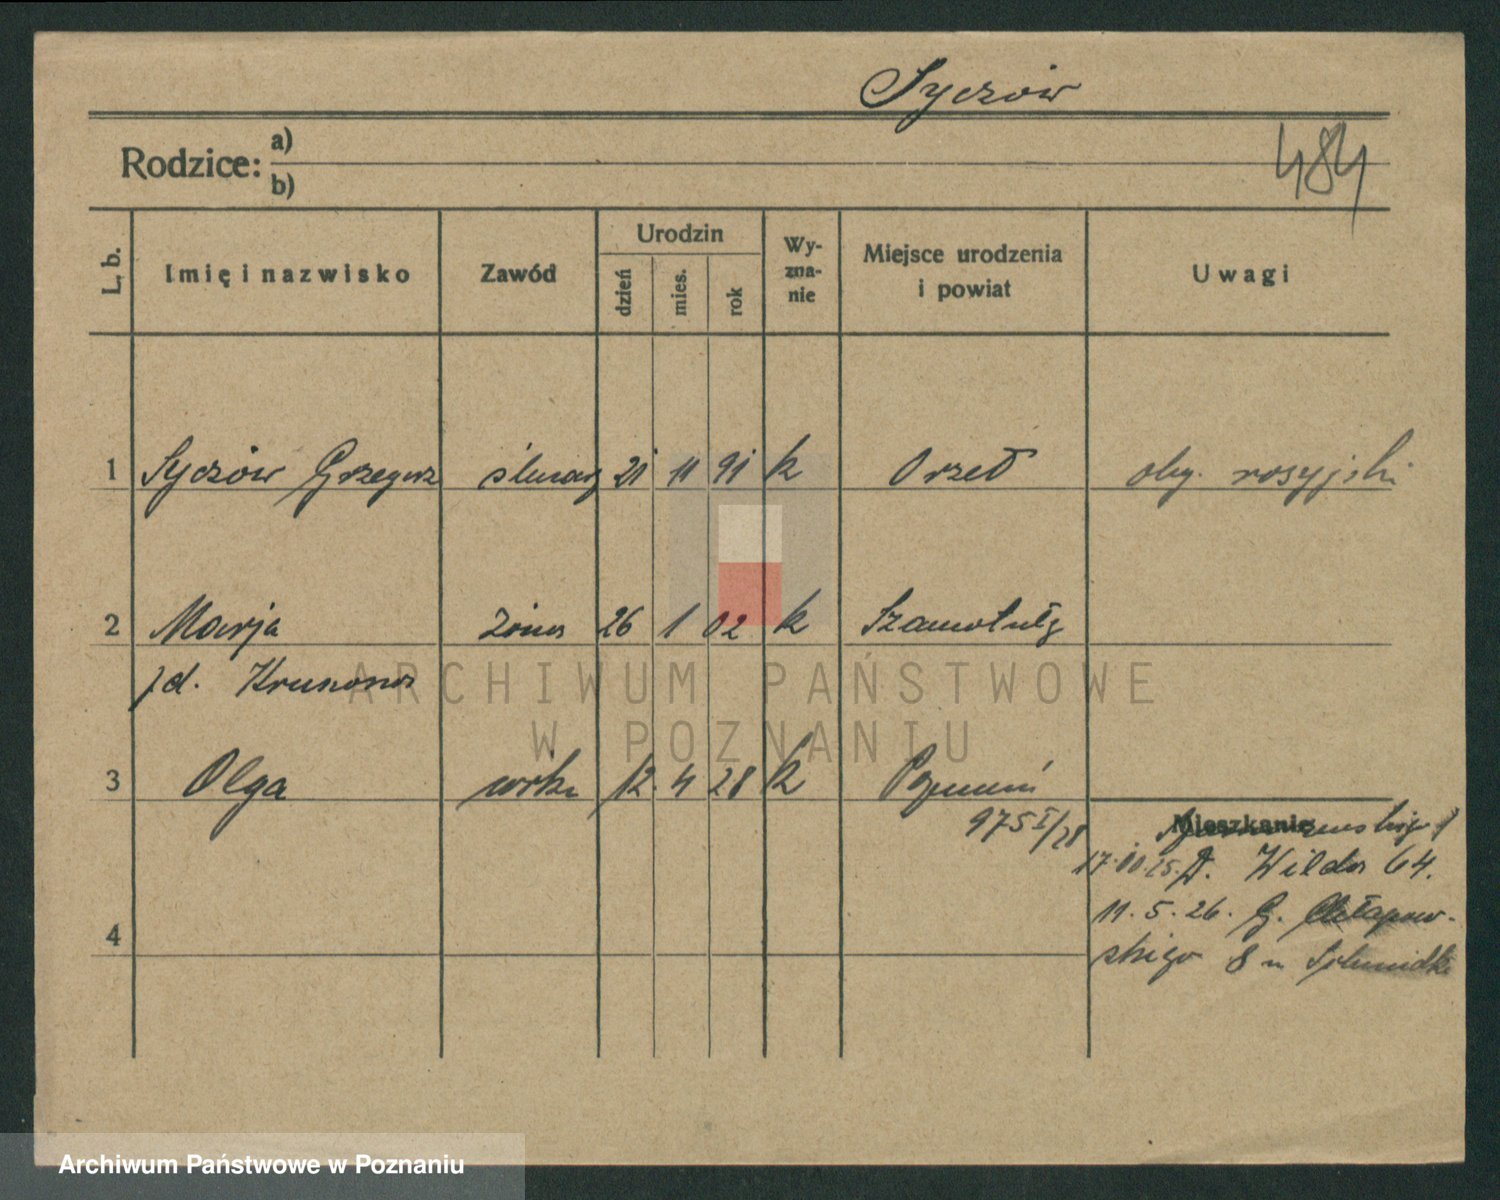 Syczów
Rodzice: a)
b)
484
L. b. Imię i nazwisko Zawód Urodzin dzień mies. rok Wy-zna-nie Miejsce urodzenia i powiat Uwagi
1 Syczów Grzegorz ślusarz 21 11 91 k Orzeł oby. rosyjski
2 Marja żona 26 1 02 k Szamotuły
Olga córka 12. 4 28 k Poznań
3
975 I/28
Mieszkanie
17.10.25. D. Wilda 64.
11. 5. 26. G. Chłapow-
4 skiego 8 u Schmidt
ARCHIWUM PAŃSTWOWE
W POZNANIU
Archiwum Państwowe w Poznaniu